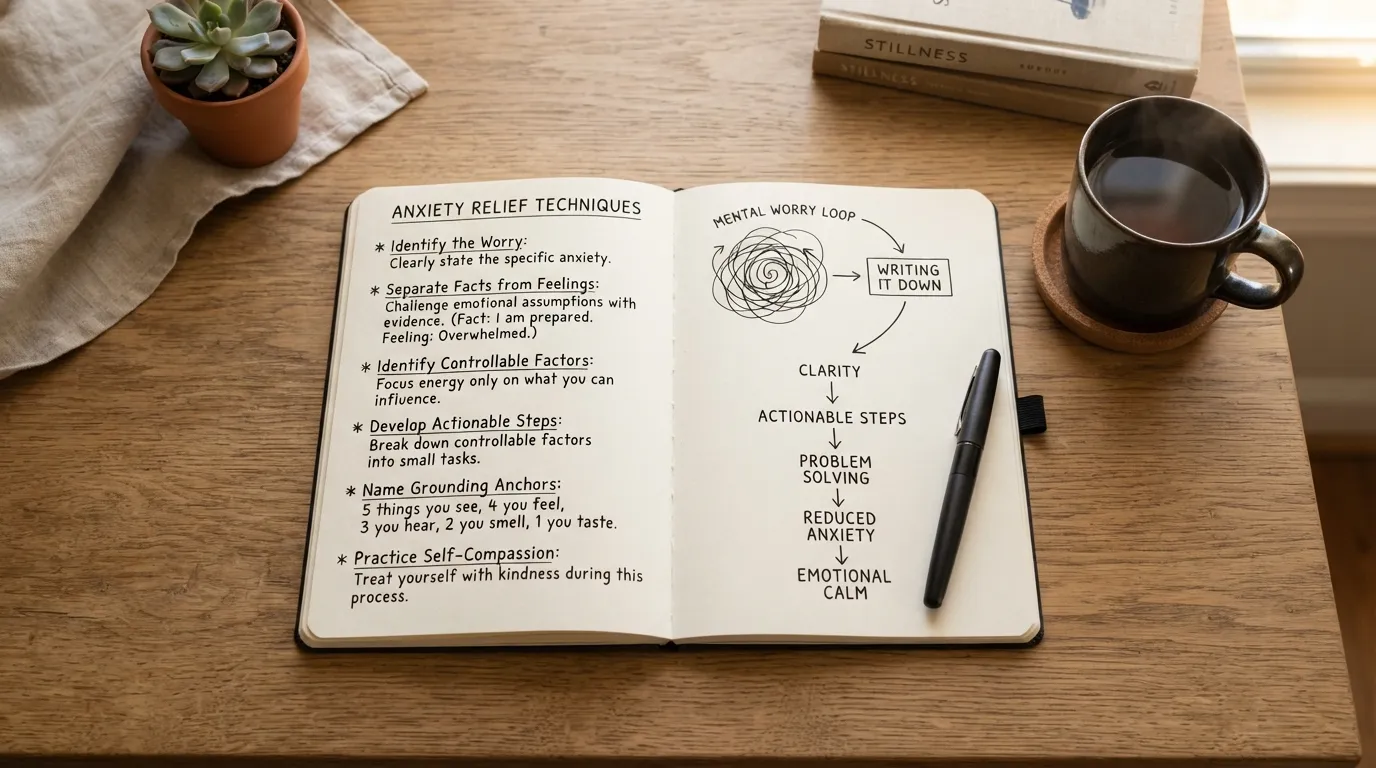 STILLNESS
STILLNESS
ANXIETY RELIEF TECHNIQUES
* Identify the Worry:
Clearly state the specific anxiety.
* Separate Facts from Feelings:
Challenge emotional assumptions with
evidence. (Fact: I am prepared.
Feeling: Overwhelmed.)
* Identify Controllable Factors:
Focus energy only on what you can
influence.
* Develop Actionable Steps:
Break down controllable factors
into small tasks.
* Name Grounding Anchors:
5 things you see, 4 you feel,
3 you hear, 2 you smell, 1 you taste.
* Practice Self-Compassion:
Treat yourself with kindness during this
process.
MENTAL WORRY LOOP
WRITING
IT DOWN
CLARITY
ACTIONABLE STEPS
PROBLEM
SOLVING
REDUCED
ANXIETY
EMOTIONAL
CALM